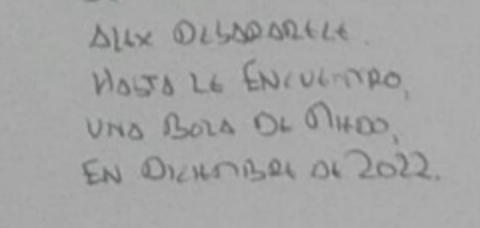 ALEX DESAPARECE.
HASTA LE ENCUENTRO,
UNA BOLA DE MIEDO,
EN DICIEMBRE DE 2022.